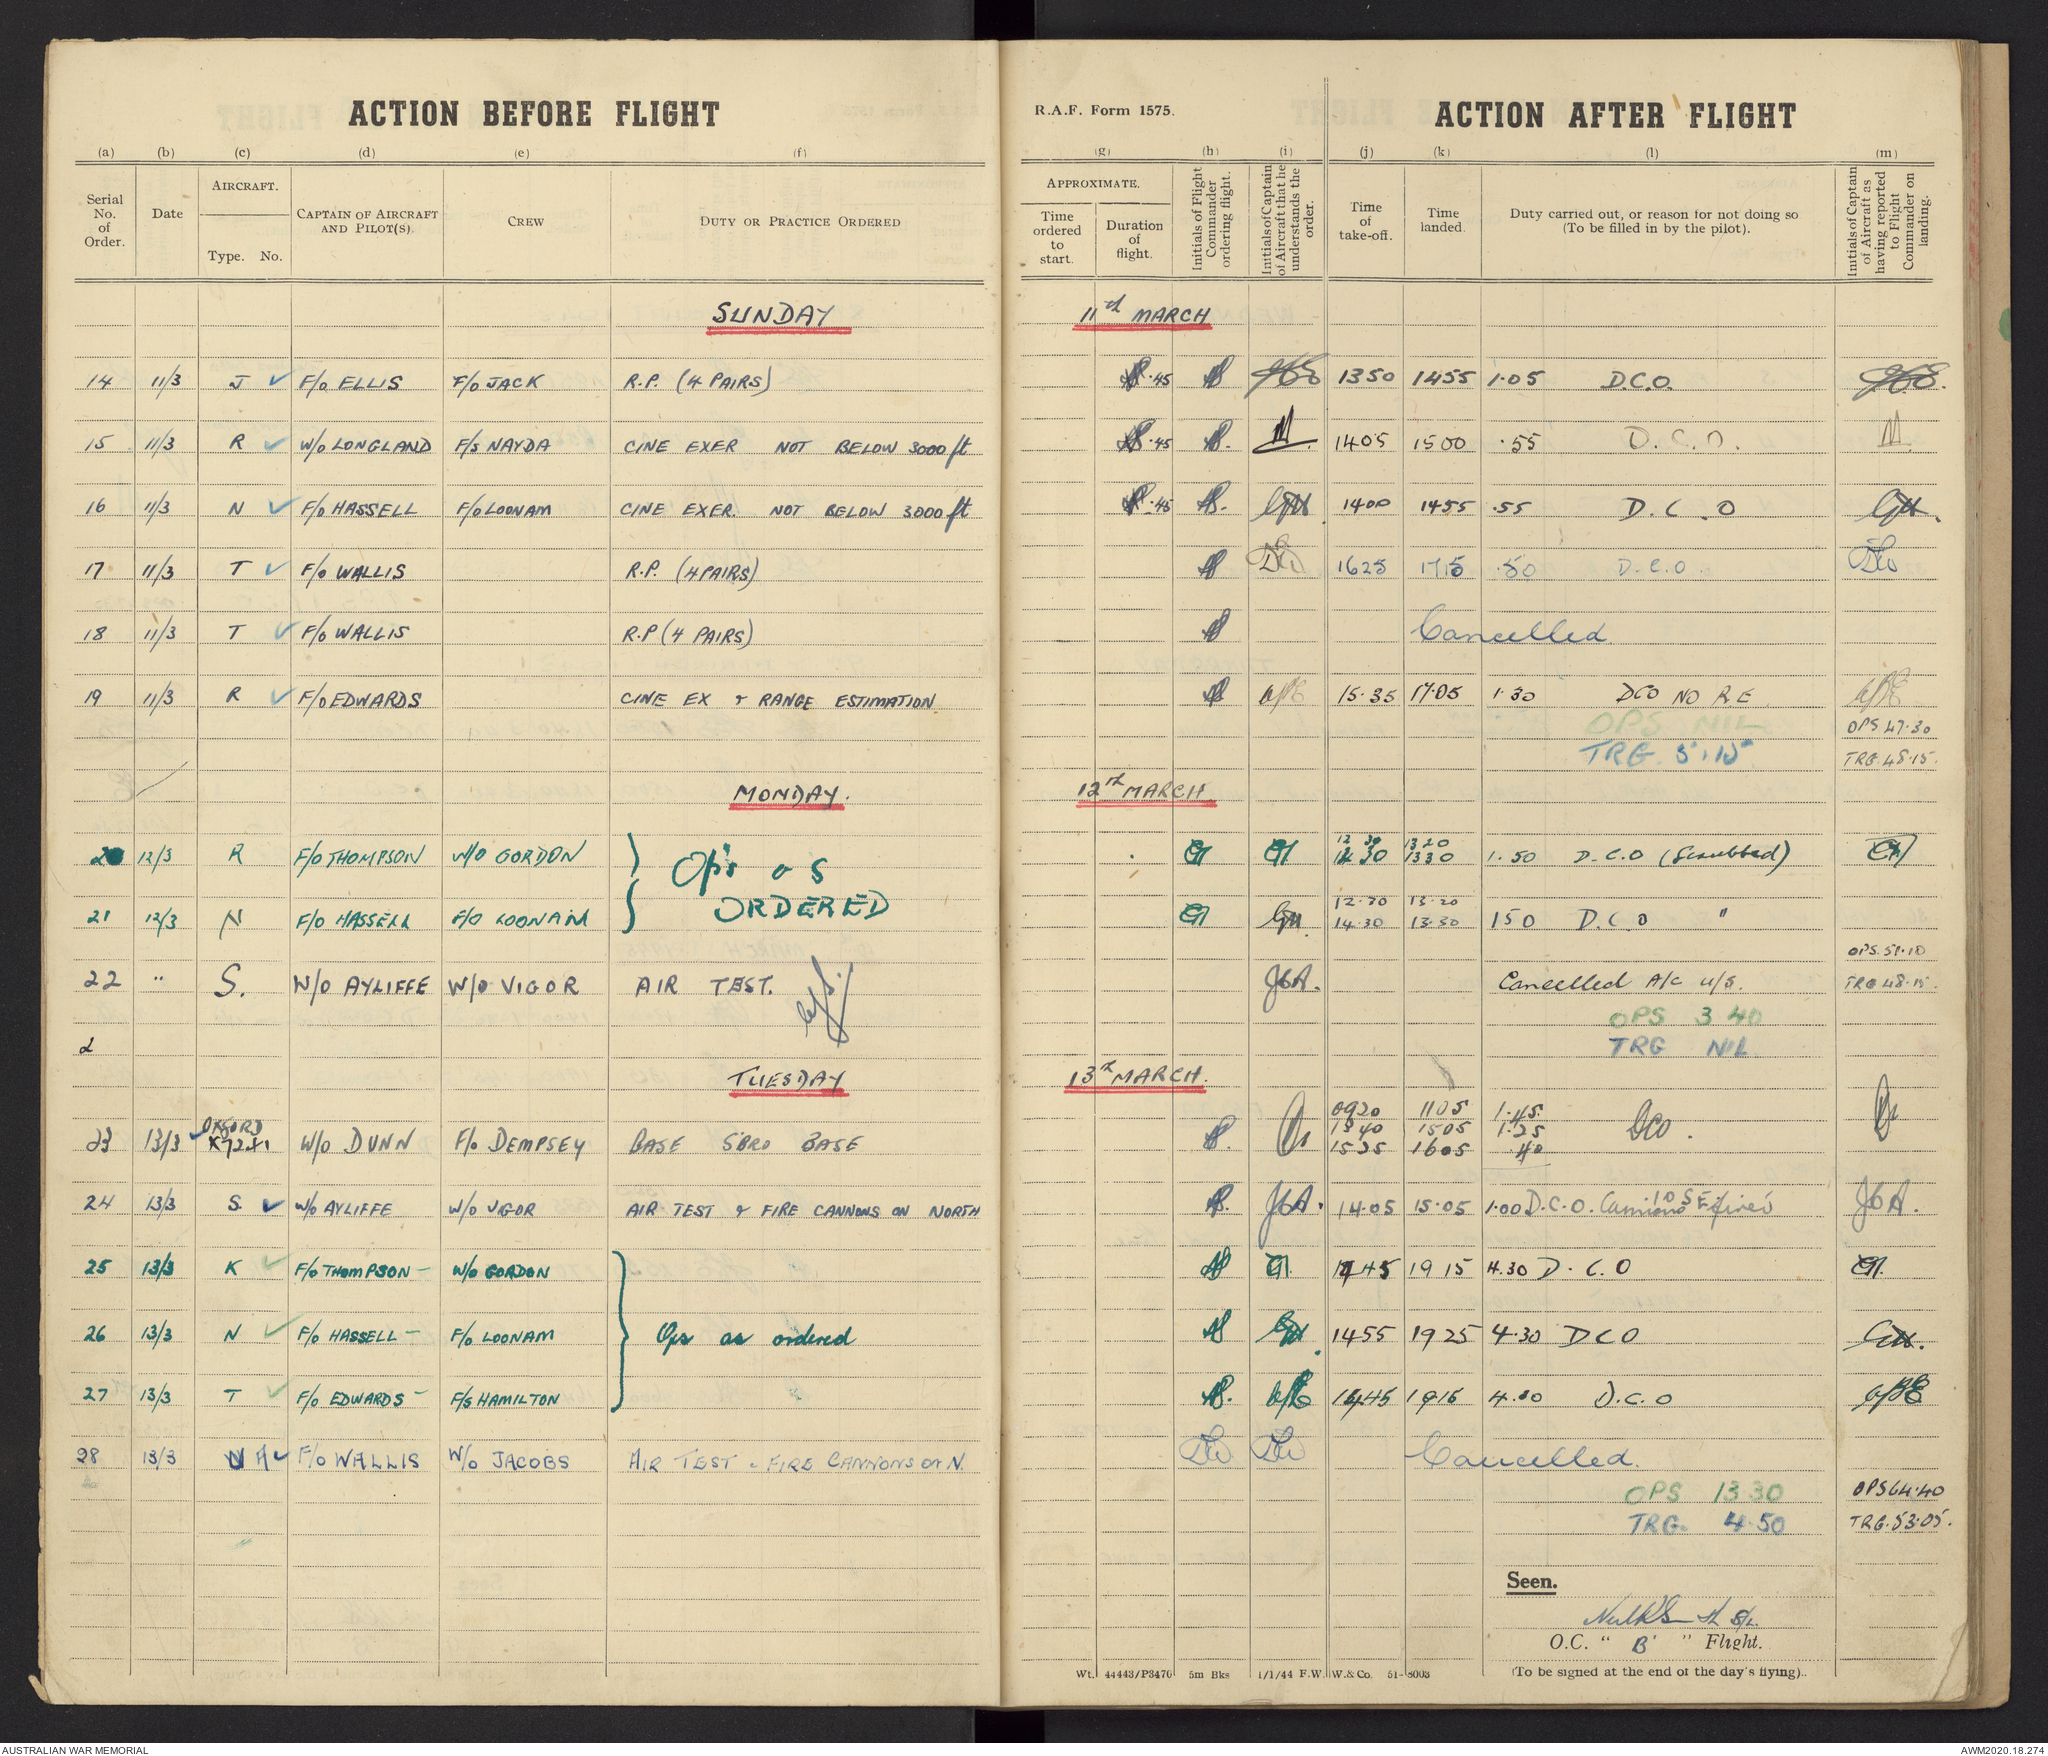 ACTION BEFORE FLIGHT
R.A.F. Form 1575.
ACTION AFTER FLIGHT
(a) (b) (c) (d) (e) (f) (g) (h) (i) (j) (k) (l) (m)
Serial No. of Order.
Date
AIRCRAFT.
Type. No.
CAPTAIN OF AIRCRAFT AND PILOT(S).
CREW
DUTY OR PRACTICE ORDERED
APPROXIMATE.
Time ordered to start.
Duration of flight.
Initials of Flight Commander ordering flight.
Initials of Captain of Aircraft that he understands the order.
Time of take-off.
Time landed.
Duty carried out, or reason for not doing so (To be filled in by the pilot).
Initials of Captain of Aircraft as having reported to Flight Commander on landing.
SUNDAY 11th MARCH
14 11/3 J F/o ELLIS F/o JACK R.P. (4 PAIRS) .45 1350 1455 1.05 D.C.O.
15 11/3 R W/o LONGLAND F/s NAYDA CINE EXER NOT BELOW 3000 ft .45 1405 1500 .55 D.C.O.
16 11/3 N F/o HASSELL F/o LOONAM CINE EXER. NOT BELOW 3000 ft .45 1400 1455 .55 D.C.O
17 11/3 T F/o WALLIS R.P. (4 PAIRS) 1625 1715 .50 D.C.O.
18 11/3 T F/o WALLIS R.P (4 PAIRS) Cancelled
19 11/3 R F/o EDWARDS CINE EX & RANGE ESTIMATION 15.35 17.05 1.30 DCO NO R.E
OPS NIL OPS 47.30
TRG 5.15 TRG.48.15.
MONDAY. 12th MARCH
20 12/3 R F/O THOMPSON W/O GORDON Op's as 12 30 1320 1330 1.50 D.C.O (Scrubbed)
21 12/3 N F/O HASSELL F/O LOONAM ORDERED 14.30 13.20 13.30 150 D.C.O "
OPS.51.10
22 " S. W/O AYLIFFE W/O VIGOR AIR TEST. JGA. Cancelled A/C u/s. TRG 48.15.
OPS 3 40
2 TRG NIL
TUESDAY 13th MARCH.
OXFORD 0920 1105 1.45
23 13/3 W/O DUNN F/o DEMPSEY BASE S'BRO BASE 1340 1505 1.25 DCO.
1525 1605 .40
24 13/3 S. W/o AYLIFFE W/o VIGOR AIR TEST & FIRE CANNONS ON NORTH JGA. 14.05 15.05 1.00 D.C.O. JGA.
25 13/3 K F/o THOMPSON - W/o GORDON 1445 1915 4.30 D.C.O
26 13/3 N F/o HASSELL - F/o LOONAM Ops as ordered 1455 1925 4.30 DCO
27 13/3 T F/o EDWARDS - F/s HAMILTON 1445 1915 D.C.O
28 13/3 F/o WALLIS W/o JACOBS AIR TEST & FIRE CANNONS ON N. Cancelled.
OPS 13.30 OPS 64.40
TRG. 4.50 TRG.53.05.
Seen.
O.C. " B " Flight.
Wt. 44443/P3476 5m Bks 1/1/44 F.W. W.& Co. 51-8003
(To be signed at the end of the day's flying).
AUSTRALIAN WAR MEMORIAL
AWM2020.18.274